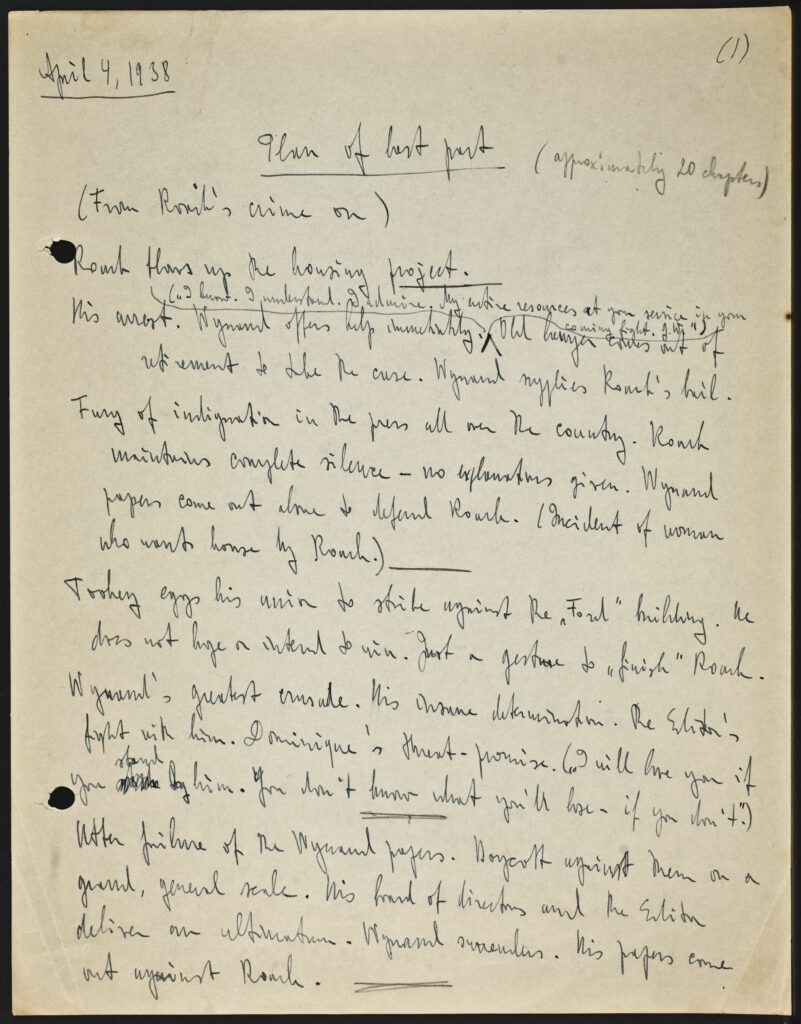 (1)
April 4, 1938
Plan of last part
(approximately 20 chapters)
(From Roark's crime on)
Roark blows up the housing project.
(„I know. I understand. I admire. My entire resources at your service in your
coming fight. G.W.")
His arrest. Wynand offers help immediately. Old lawyer comes out of
retirement to take the case. Wynand supplies Roark's bail.
Fury of indignation in the press all over the country. Roark
maintains complete silence – no explanations given. Wynand
papers come out alone to defend Roark. (Incident of woman
who wants house by Roark.)
Toohey eggs his union to strike against the „Ford" building. He
does not hope or intend to win. Just a gesture to „finish" Roark.
Wynand's greatest crusade. His insane determination. The Editor's
fight with him. Dominique's threat-promise. („I will love you if
you stand by him. You don't know what you'll lose – if you don't".)
Utter failure of the Wynand papers. Boycott against them on a
grand, general scale. His board of directors and the Editor
deliver an ultimatum. Wynand surrenders. His papers come
out against Roark.